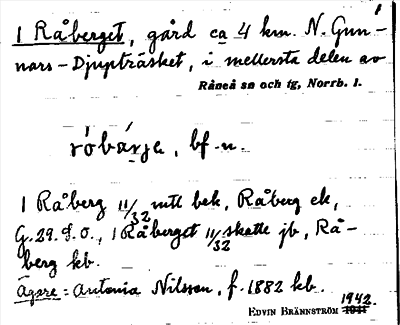 1 Råberget, gård ca 4 km. N. Gun-
nars-Djupträsket, i mellersta delen av
Råneå sn och tg, Norrb. l.
róbærje, bf. n.
1 Råberg 11/32 mtl bek, Råberg ek,
G. 29. J.O., 1 Råberget 11/32 skatte jb, Rå-
berg kb.
Ägare: Antonia Nilsson, f. 1882 kb.
EDVIN BRÄNNSTRÖM 1942.